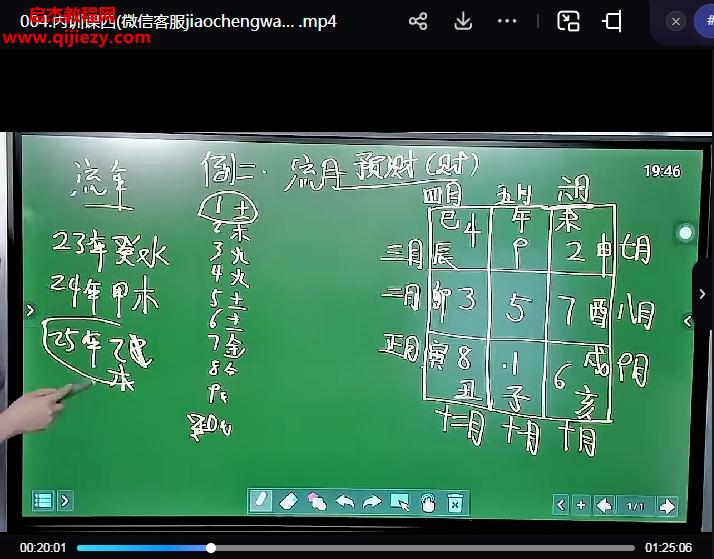 004.内训课四(微信客服jiaochengwa... .mp4
启杰教程网
www.qijiezy.com
19:46
流年
例二. 流月预财(财)
23年癸水
24年甲木
25年乙木
1土
2木
3火
4火
5土
6土
7金
8
9
四月 五月 六月
巳 4 午 9 未 2
三月 辰 申 七月
二月 卯 3 5 7 酉 八月
正月 寅 8 1 6 戌 九月
丑 子 亥
十二月 十一月 十月
1/1
00:20:01
01:25:06